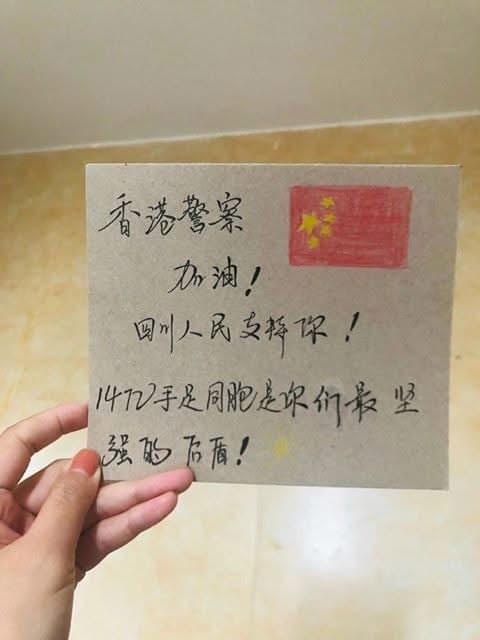 香港警察
加油!
四川人民支持你!
14亿手足同胞是你们最坚
强的后盾!